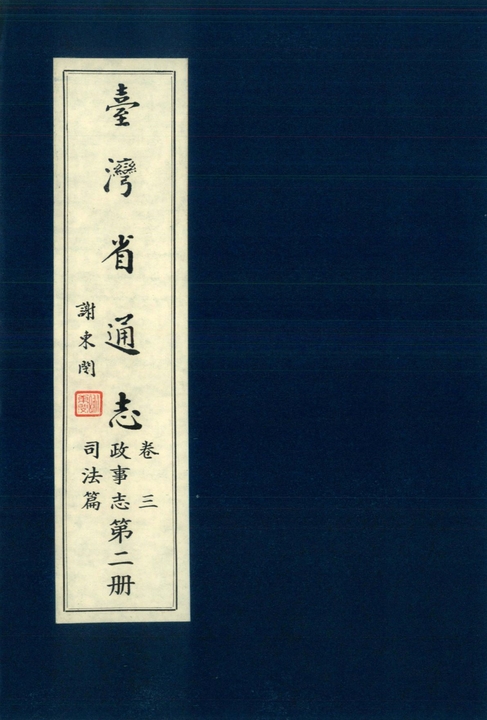 臺灣省通志
卷三
政事志
司法篇
第二册
謝東閔